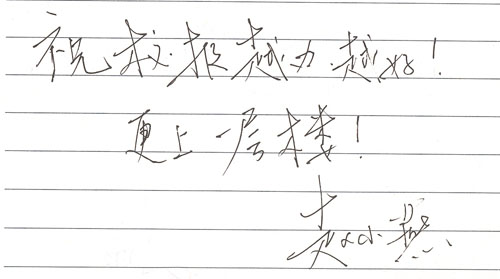 祝校报越办越好！
更上一层楼！